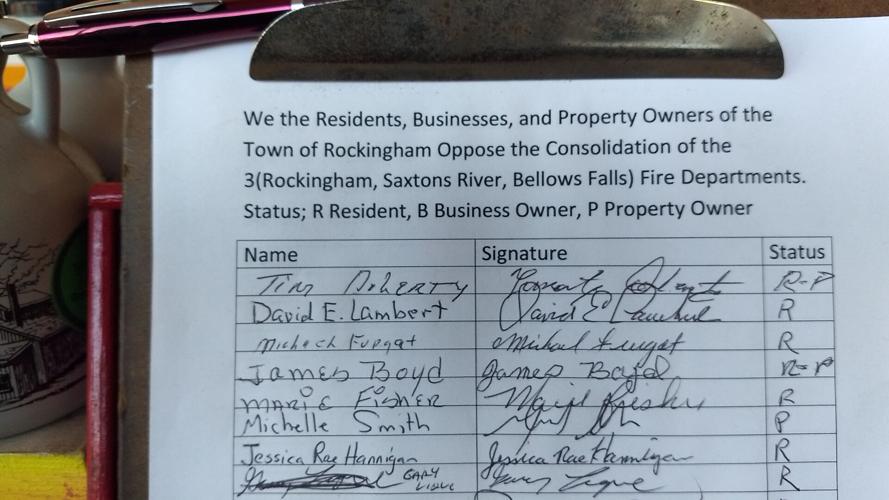 We the Residents, Businesses, and Property Owners of the
Town of Rockingham Oppose the Consolidation of the
3(Rockingham, Saxtons River, Bellows Falls) Fire Departments.
Status; R Resident, B Business Owner, P Property Owner
Name Signature Status
Tim Doherty R-P
David E. Lambert David E Lambert R
Michael Fuggat R
James Boyd James Boyd R-P
MARIE FISHER R
Michelle Smith P
Jessica Rae Hannigan Jessica Rae Hannigan R
GARY R